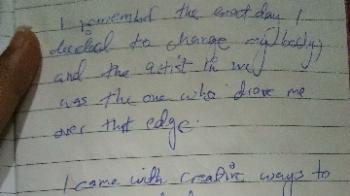 I remember the exact day I
decided to change my (body)
and the artist in me
was the one who drove me
over that edge.
I came with creative ways to